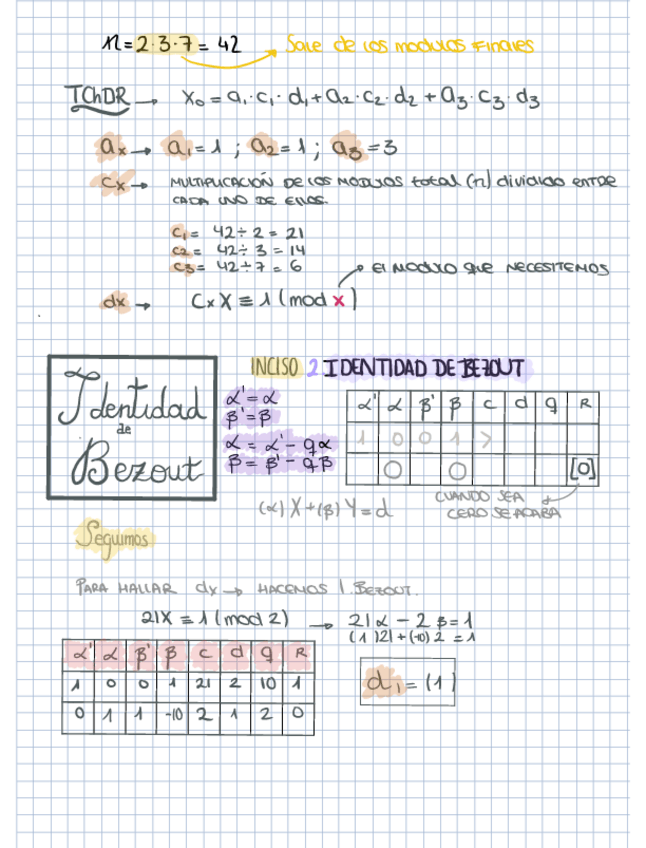 n = 2·3·7 = 42 Sale de los modulos Finales
TChDR → X₀ = a₁·c₁·d₁ + a₂·c₂·d₂ + a₃·c₃·d₃
ax → a₁ = 1 ; a₂ = 1 ; a₃ = 3
cx → MULTIPLICACIÓN DE LOS MODULOS total (n) dividido ENTRE
CADA UNO DE ELLOS.
C₁ = 42 ÷ 2 = 21
C₂ = 42 ÷ 3 = 14
C₃ = 42 ÷ 7 = 6
El MODULO QUE NECESITEMOS
dx → Cx X ≡ 1 (mod x)
Identidad
de
Bezout
INCISO 2 IDENTIDAD DE BEZOUT
α' = α
β' = β
α = α' - qα
β = β' - qβ
α' α β' β c d q R
1 0 0 1 >
0 0 [0]
CUANDO SEA
CERO SE ACABA
(α) X + (β) Y = d
Seguimos
PARA HALLAR dx → HACEMOS I. BEZOUT.
21X ≡ 1 (mod 2) → 21α - 2β = 1
(1)21 + (-10)2 = 1
α' α β' β c d q R
1 0 0 1 21 2 10 1
0 1 1 -10 2 1 2 0
d₁ = (1)